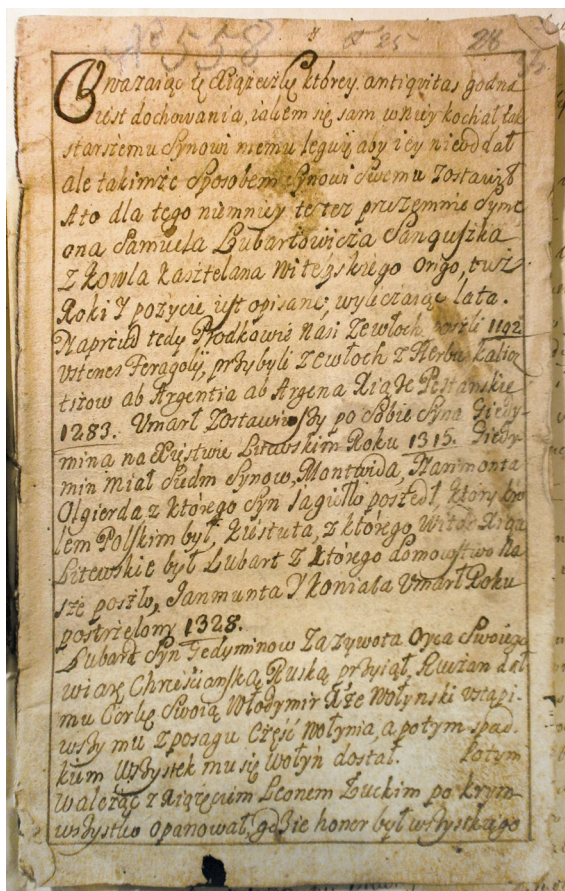 No 558 25 28
Uwazaiąc tę Xiążeczkę ktorey antiqvitas godna
iest dochowania, iakem się sam w niey kochał tak
starszemu Synowi memu leguię aby iey nieoddał
ale takimże sposobem Synowi Swemu zostawił
A to dla tego niemniey też przezemnie Syme
ona Samuela Lubartowicza Sanguszka
z Kowla Kasztelana Witebskiego
Roki y pozycie iest opisane, wyliczaiąc lata.
Naprzud tedy Przodkowie Nasi Zewłoch poszli 1192
Vrsenes Feragolÿ, przybyli z ewłoch z Herbu
titow ab Argentia ab Argena Xiąże
1283. Umarł Zostawiwszy po Sobie Syna Giedy
mina na Xięstwie Litewskim Roku 1315. Giedy
min miał siedm Synow, Montwida, Narimonta
Olgierda z ktorego Syn Iagiełło poszedł ktory kro
lem Polskim był, Kiestuta, z ktorego Witold
Litewskie był Lubart z ktorego domowstwo Na
sze poszło, Ianmunta Y Koriata Umarł Roku
postrzelony 1328.
Lubard Syn Gedyminow Za zywota Oyca Swoiego
wiarę Chrzesciańską Ruską przyiął,
mu Corkę Swoią Włodymir Xże Wołynski
wszy mu z posagu Część Wołynia, a potym spad
kum Wszystek mu się Wołyń dostał. Potym
walcząc z Xiążęciem Leonem Łuckim po
wszystko opanował, gdzie honor był wszystkiego